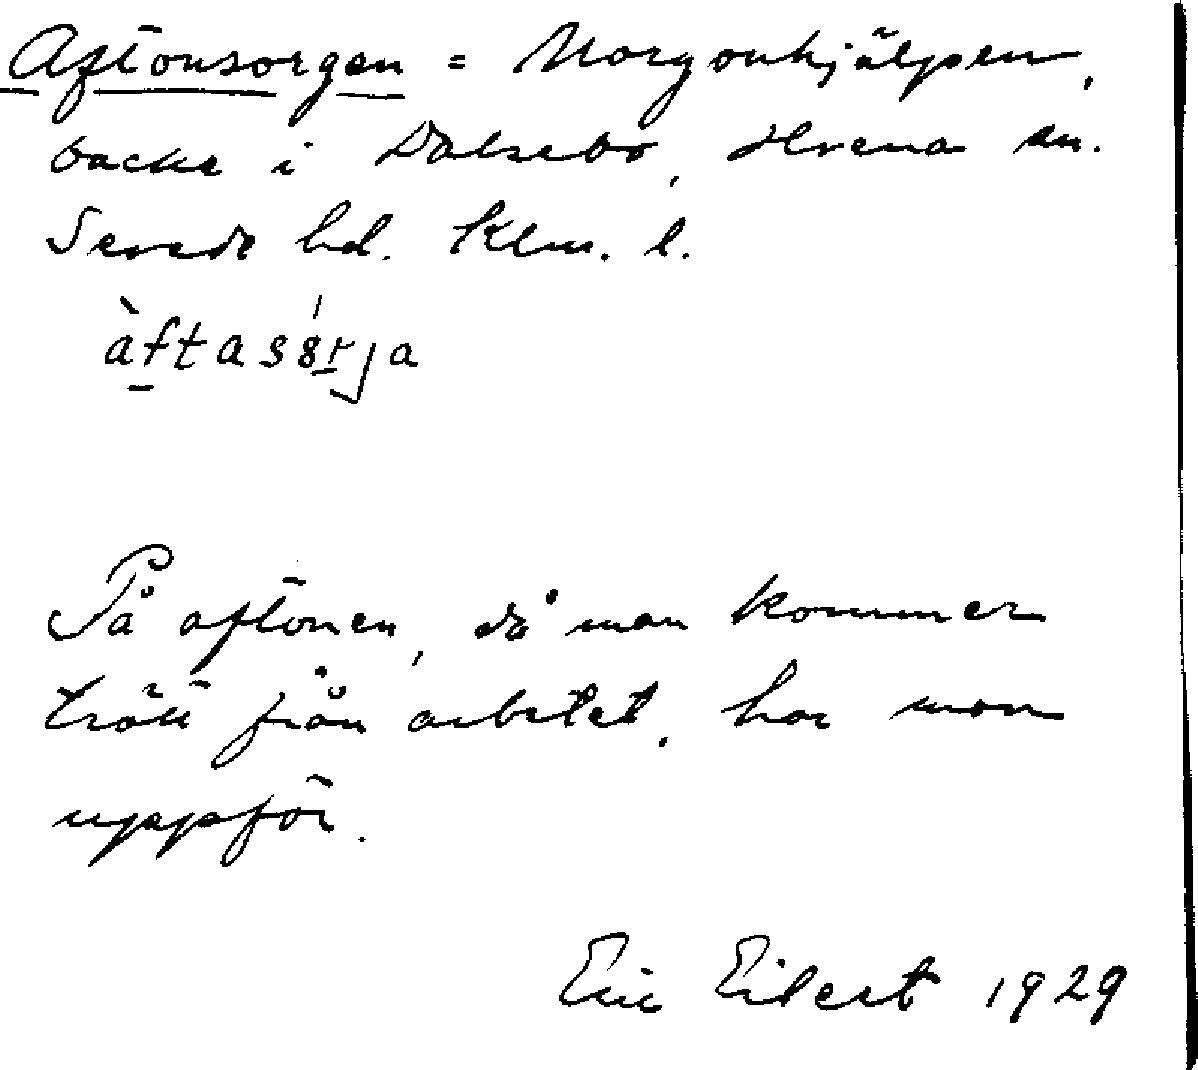 Aftonsorgen = Morgonhjälpen,
backe i Dalsebo, Hvena sn.
Sevede hd. Klm. l.
àftasórja
På aftonen, då man kommer
trött från arbetet, har man
uppför.
Eric Eilert 1929